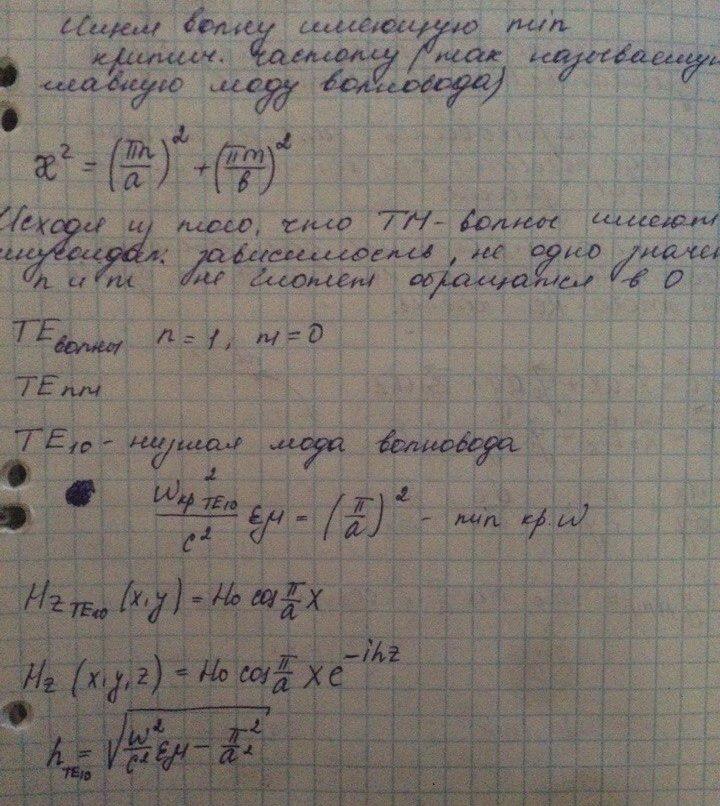 Ищем волну имеющую min
критич. частоту (так называемую
главную моду волновода)
æ² = (πn/a)² + (πm/b)²
Исходя из того, что TM-волны имеют
синусоидал. зависимость, не одно значен
n и m не может обращатся в 0
TE волны n = 1, m = 0
TEnm
TE₁₀ - низшая мода волновода
ω²кр TE₁₀/c² εμ = (π/a)² - min кр. ω
Hz TE₁₀ (x,y) = H₀ cos π/a x
Hz (x,y,z) = H₀ cos π/a x e^(-ihz)
h TE₁₀ = √(ω²/c² εμ - π²/a²)